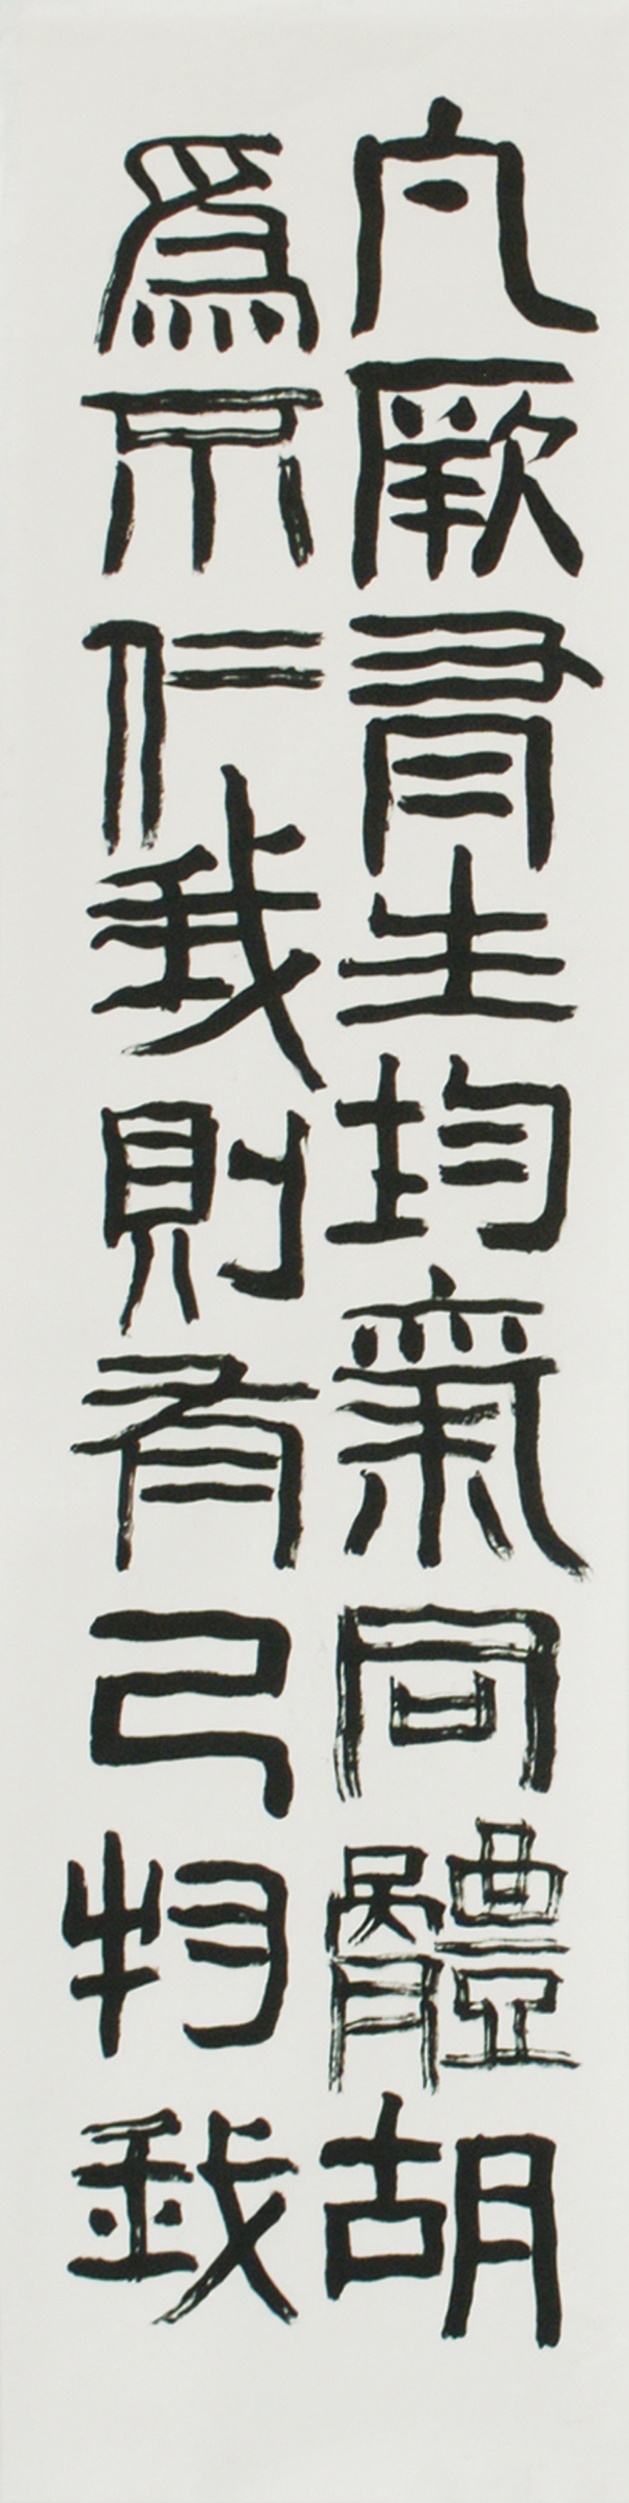 凡厥有生均氣同體胡
爲不仁我則有己物我